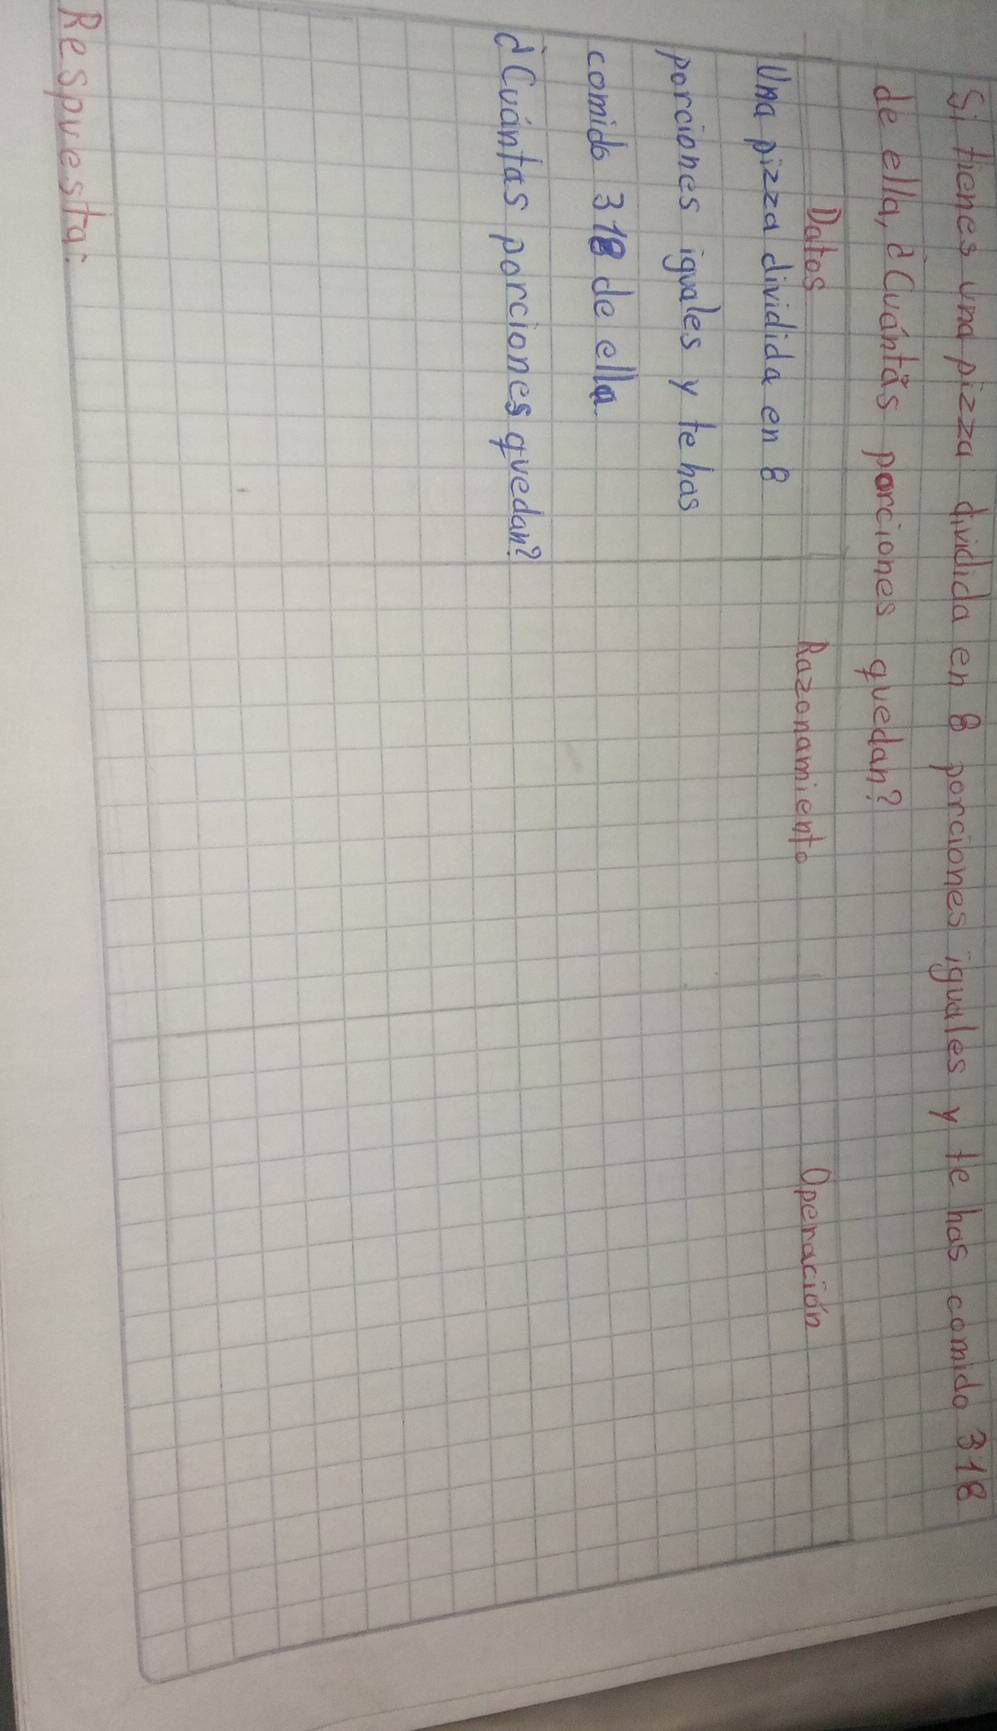 Si tienes una pizza dividida en 8 porciones iguales y te has comido 3/8
de ella, ¿Cuántas porciones quedan?
Datos
Razonamiento
Operación
Una pizza dividida en 8
porciones iguales y te has
comido 3/8 de ella.
¿Cuántas porciones quedan?
Respuesta: